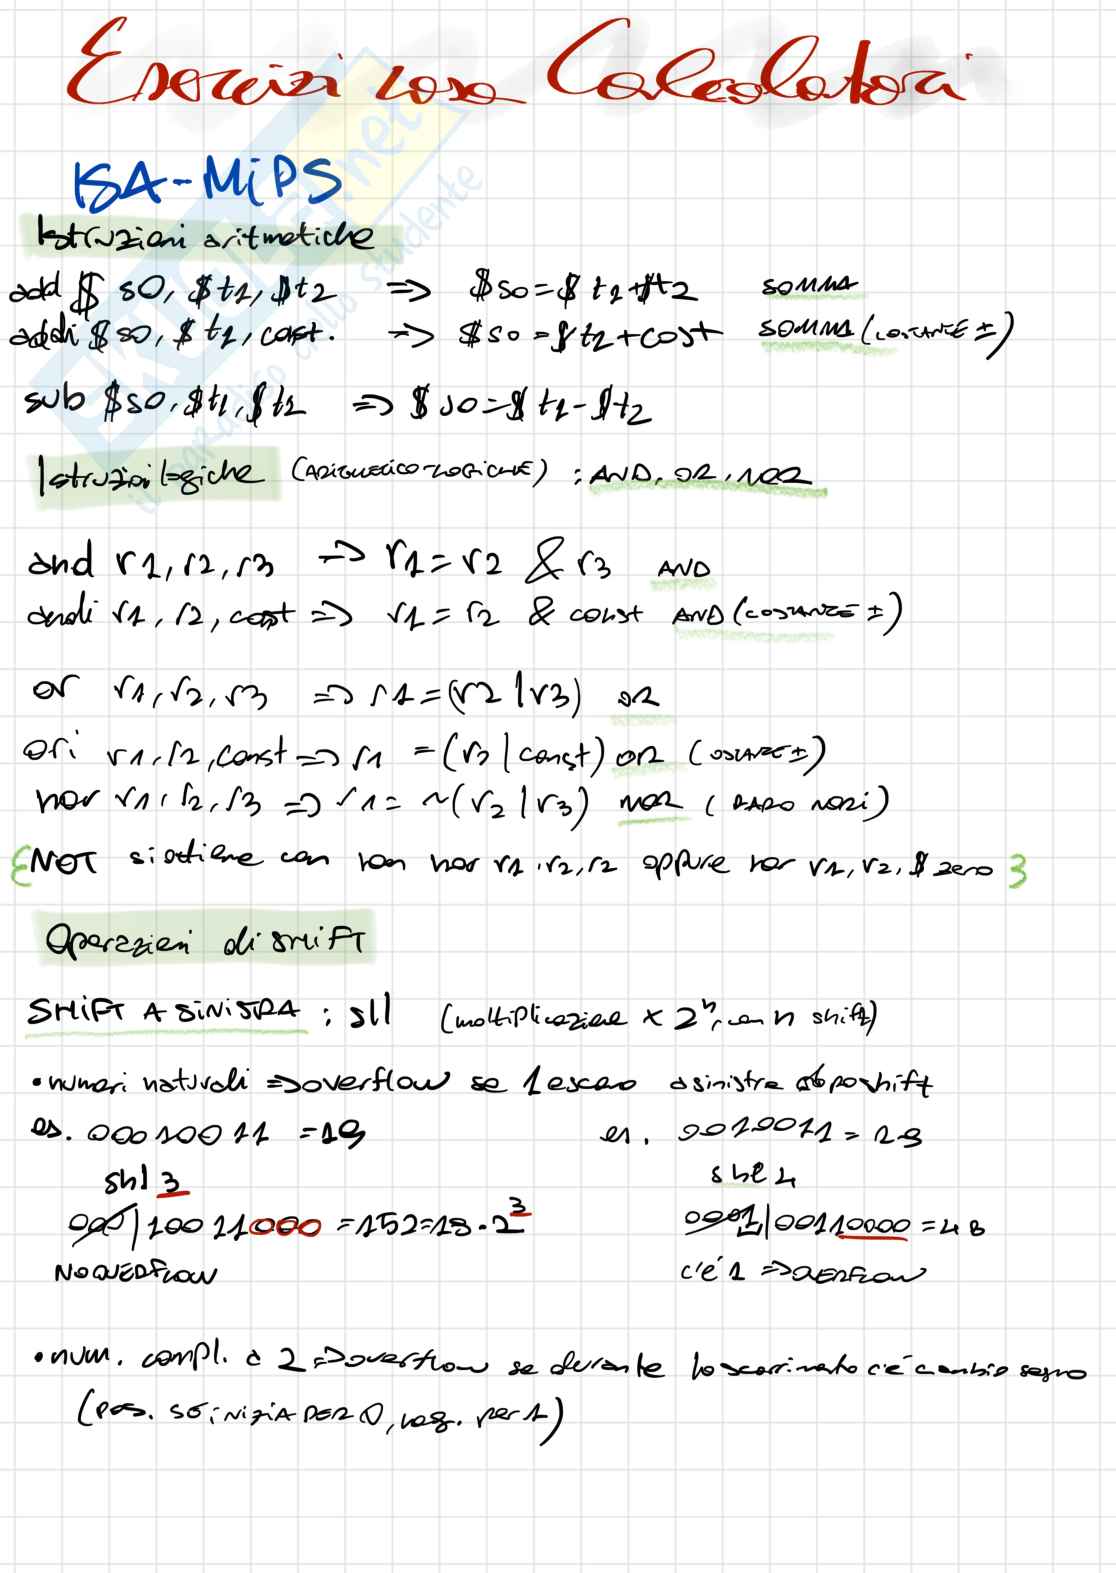 Esercizi casa Calcolatori
ISA-MiPS
Istruzioni aritmetiche
add $ s0, $t1, $t2 => $s0 = $ t1 + $t2 SOMMA
addi $ s0, $ t1, cost. => $s0 = $t1 + cost SOMMA (COSTANTE ±)
sub $s0, $t1, $t2 => $ s0 = $ t1 - $t2
Istruzioni logiche (ARITMETICO-LOGICHE) : AND, OR, NOR
and r1, r2, r3 => r1 = r2 & r3 AND
andi r1, r2, cost => r1 = r2 & const AND (COSTANTE ±)
or r1, r2, r3 => r1 = (r2 | r3) OR
ori r1, r2, const => r1 = (r3 | const) OR (COSTANTE ±)
nor r1, r2, r3 => r1 = ~(r2 | r3) NOR
{NOT si ottiene con nor r1, r2, r2 oppure nor r1, r2, $ zero }
Operazioni di SHiFT
SHiFT A SiNiSTRA : sll (moltiplicazione x 2^n, con n shift)
• numeri naturali => overflow se 1 escono a sinistra dopo shift
es. 00010011 = 19 es. 0010011 = 19
shl 3 shl 4
000|10011000 = 152 = 19 · 2^3 0001|00110000 = 48
NO OVERFLOW c'é 1 => OVERFLOW
• num. compl. a 2 => overflow se durante lo scorrimento c'é cambio segno
(pos. SE iNiZiA PER 0, neg. per 1)
SKUOLA.net
il paradiso dello studente